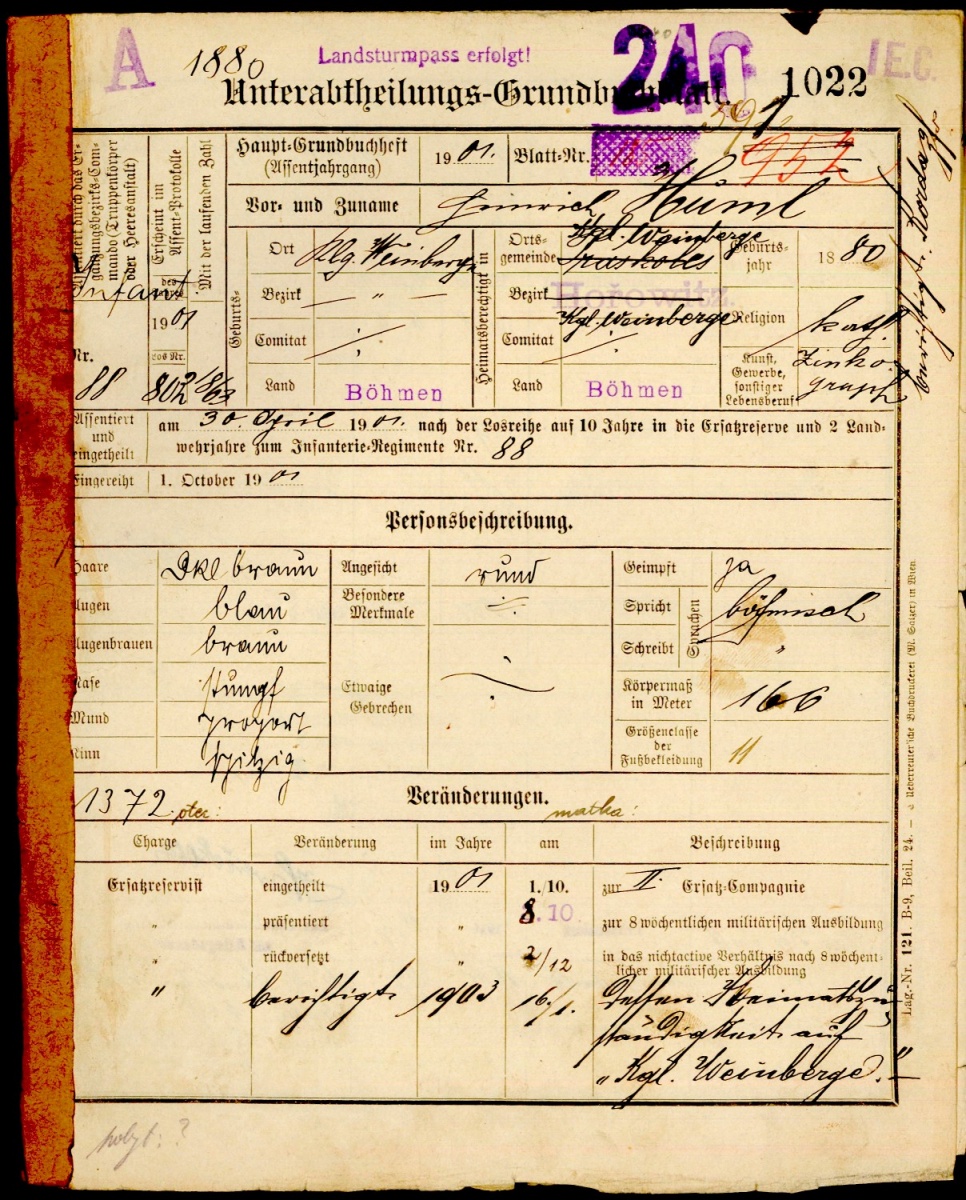 A
1880
Landsturmpass erfolgt!
240
1022
I E.C.
Unterabtheilungs-Grundbuchblatt
Haupt-Grundbuchheft
(Assentjahrgang)
1901.
Blatt-Nr.
952
Assentiert durch das Er-
gänzungsbezirks-Com-
mando (Truppenkörper
oder Heeresanstalt)
Erscheint im
Assent-Protokolle
Mit der laufenden Zahl
Infant
des
1901
Nr.
Los Nr.
88
802
Vor- und Zuname
Heinrich Huml
Geburts-
Ort
Klg. Weinberge
Bezirk
"
Comitat
Land
Böhmen
Heimatsberechtigt in
Orts-
gemeinde
Kgl. Weinberge
Bezirk
Hořowitz.
Kgl. Weinberge
Comitat
Land
Böhmen
Geburts-
jahr
1880
Religion
kath
Kunst,
Gewerbe,
sonstiger
Lebensberuf
Zinko-
graph
Assentiert
und
eingetheilt
am 30. April 1901. nach der Losreihe auf 10 Jahre in die Ersatzreserve und 2 Land-
wehrjahre zum Infanterie-Regimente Nr. 88
Eingereiht
1. October 1901
Personsbeschreibung.
Haare
Dkl braun
Augen
blau
Augenbrauen
braun
Nase
stumpf
Mund
proport
Kinn
spitzig
Angesicht
rund
Besondere
Merkmale
Etwaige
Gebrechen
Geimpft
ja
Spricht
böhmisch
Schreibt
"
Sprachen
Körpermaß
in Meter
166
Größenclasse
der
Fußbekleidung
11
1372
otec:
Veränderungen.
matka:
Charge
Veränderung
im Jahre
am
Beschreibung
Ersatzreservist
eingetheilt
1901
1./10.
zur II. Ersatz-Compagnie
"
präsentiert
"
8.10.
zur 8 wöchentlichen militärischen Ausbildung
"
rückversetzt
"
2/12
in das nichtactive Verhältnis nach 8 wöchent-
licher militärischer Ausbildung
"
berichtigt
1903
16./1.
Dessen Heimatszu-
ständigkeit auf
„Kgl. Weinberge."
Lag.-Nr. 121. B-9, Beil. 24. — Ueberreuter'sche Buchdruckerei (M. Salzer) in Wien